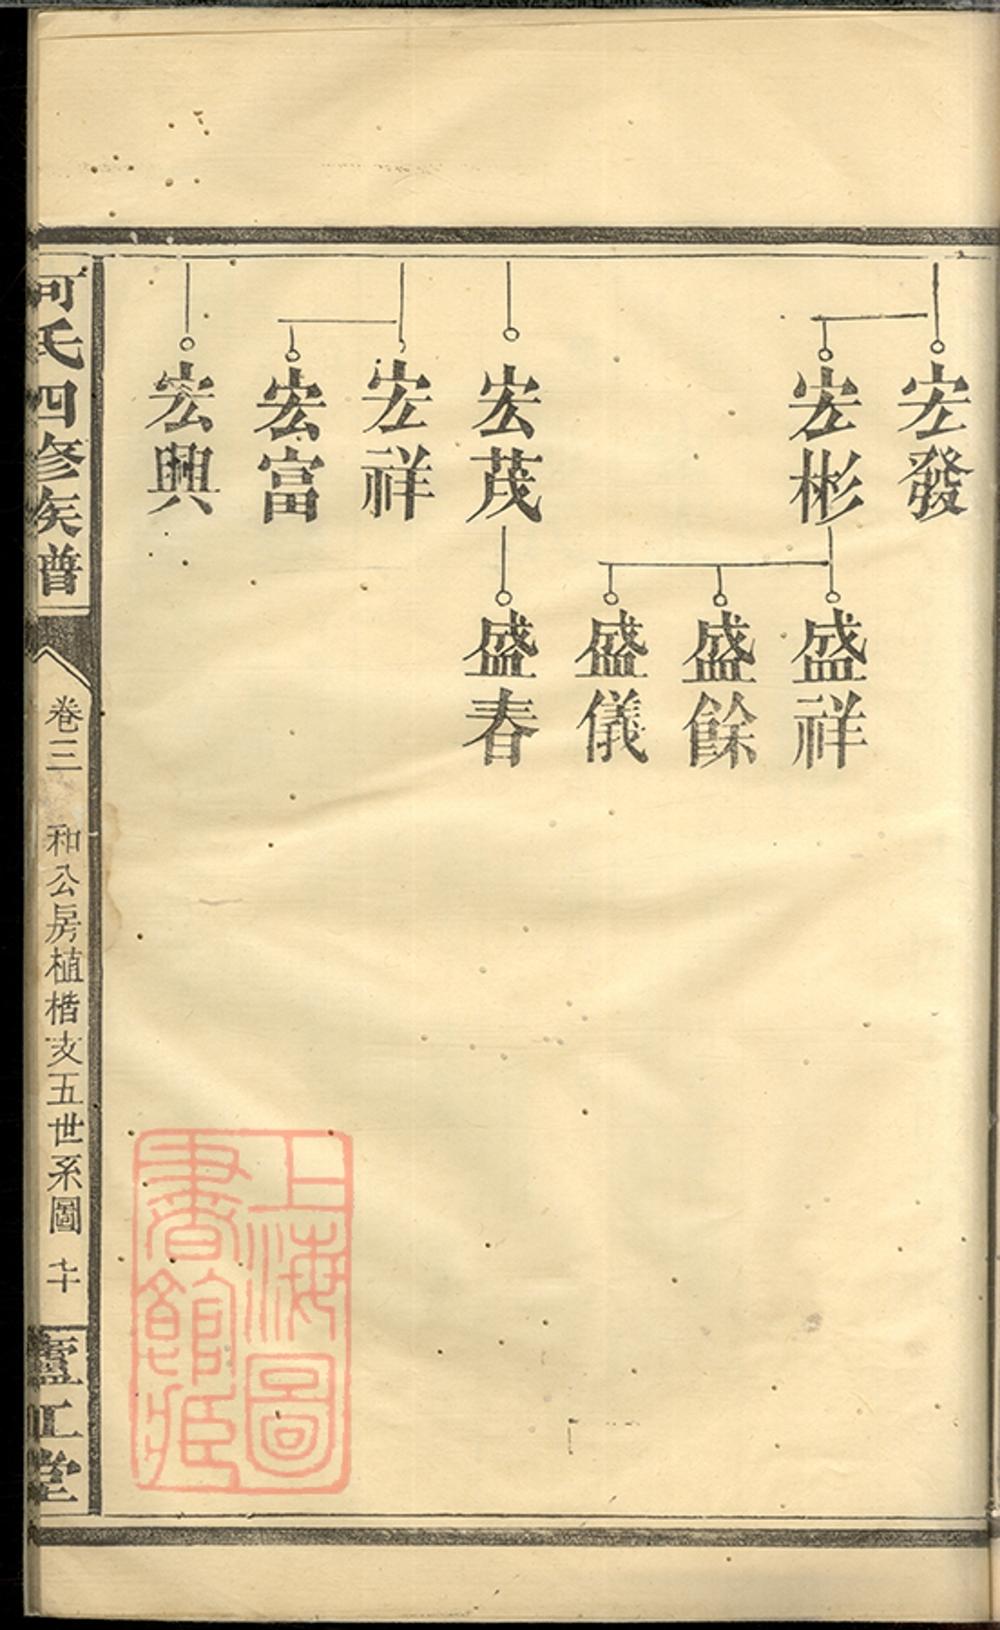 宏發
宏彬
盛祥
盛餘
盛儀
宏茂
盛春
宏祥
宏富
宏興
何氏四修族譜
卷三
和公房植楷支五世系圖
七十
廬江堂
上海圖
書館藏